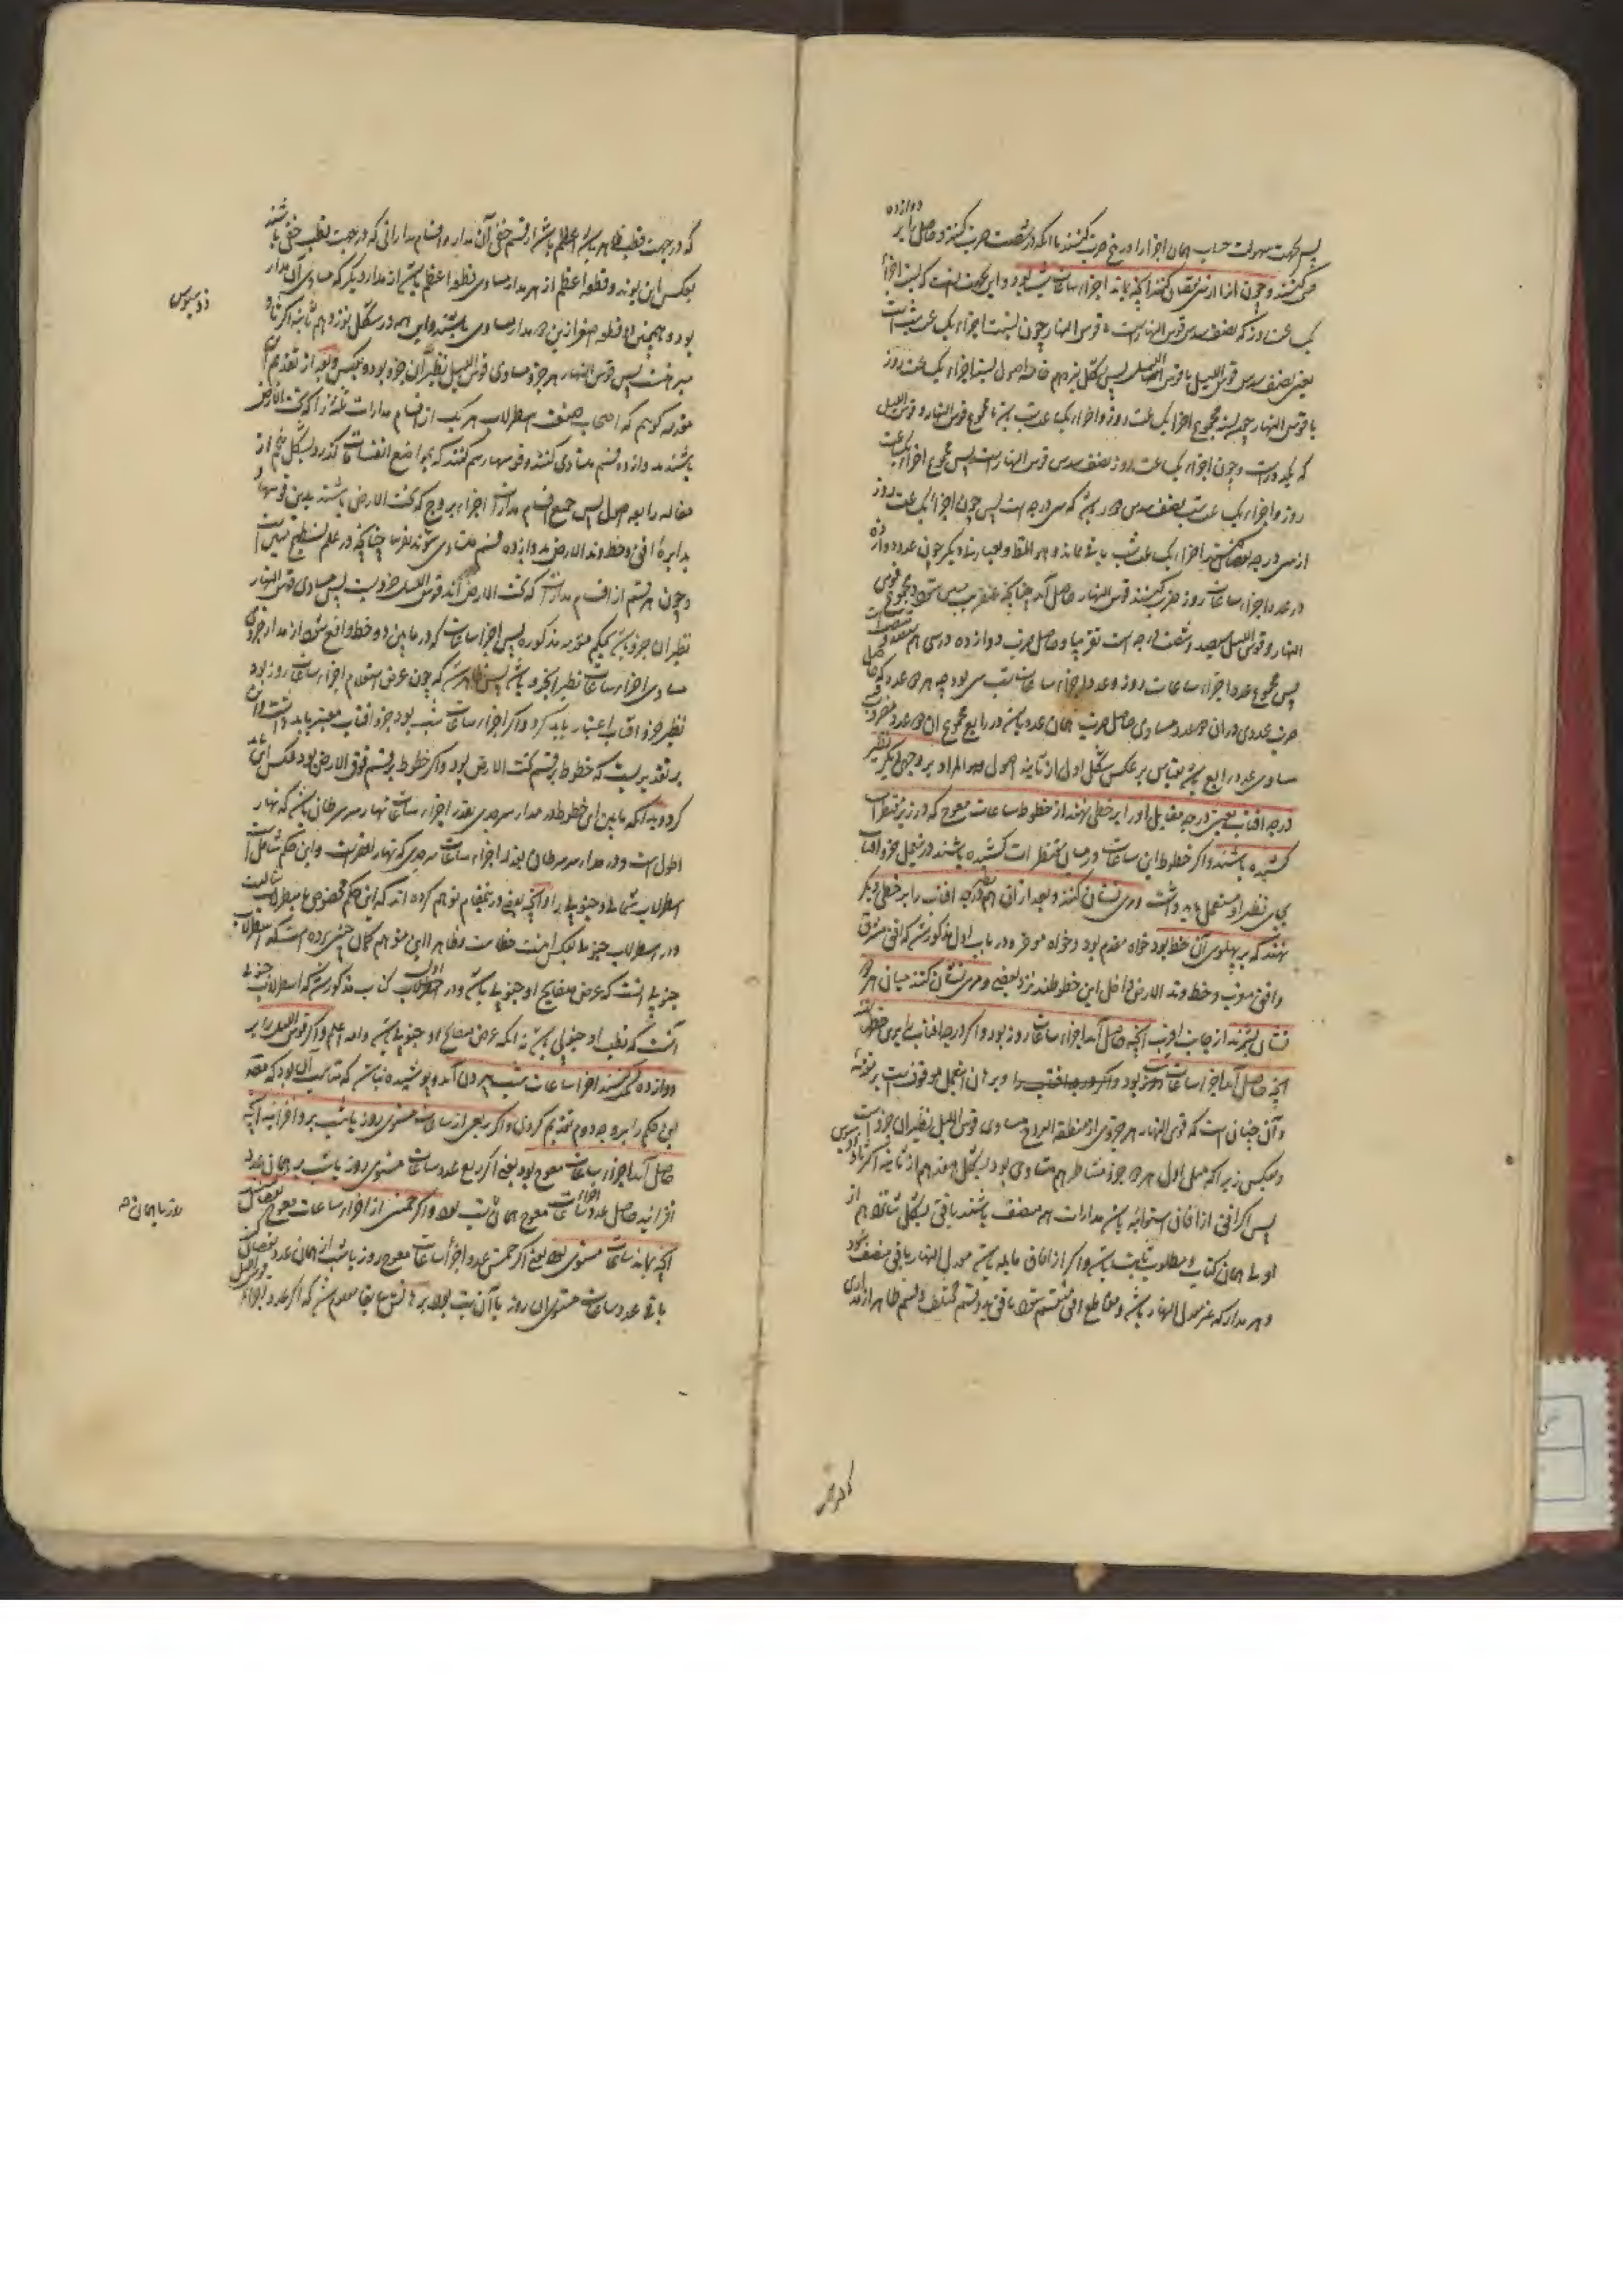 پس بجهت سهولت حساب همان اجزا را در پنج ضرب کنند یا آنکه در شصت ضرب کنند و حاصل را بر دوازده
کنند و چون از سی نقصان کنند آنچه بماند اجزاء ساعات شب بود و این بجهت آنست که نسبت اجزاء
یک ساعت روز که نصف سدس قوس النهار است با قوس النهار چون نسبت اجزاء یک ساعت شب است
یعنی نصف سدس قوس اللیل با قوس اللیل پس بشکل اصول نسبت اجزاء یک ساعت روز
با قوس النهار چون نسبت مجموع اجزاء یک ساعت روز و اجزاء یک ساعت شب با مجموع قوس النهار و قوس اللیل
که یک دور است و چون اجزاء یک ساعت روز نصف سدس قوس النهار است پس مجموع اجزاء یک ساعت
روز و اجزاء یک ساعت شب نصف سدس دور باشد که سی درجه است پس چون اجزاء یک ساعت روز
از سی درجه نقصان کنند اجزاء یک ساعت شب باقی ماند و هو المطلوب و بعبارت دیگر چون عدد دوازده
در عدد اجزاء ساعات روز ضرب کنند قوس النهار حاصل آید چنانکه عنقریب مبین شود و مجموع قوس
النهار و قوس اللیل سیصد و شصت درجه است تقریبا و حاصل ضرب دوازده در سی هم سیصد و شصت است
پس مجموع عدد اجزاء ساعات روز و عدد اجزاء ساعات شب سی بود چه هر دو عدد که حاصل
ضرب عددی در آن دو عدد مساوی حاصل ضرب همان عدد باشد در رابع مجموع آن دو عدد مضروب فیه
مساوی عدد رابع باشد بقیاس بر عکس شکل اول از ثانیه اصول و هو المراد بوجهی دیگر نظیر
درجه آفتاب یعنی درجه مقابل او را بر خطی نهند از خطوط ساعات معوج که در زیر مقنطرات
کشیده باشند و اگر خطوط این ساعات در میان مقنطرات کشیده باشند درین عمل جزو آفتاب
بجای نظیر او مستعمل باید داشت و مری نشان کنند و بعد از آن هم نظیر درجه آفتاب را بر خطی دیگر
نهند که بر پهلوی آن خط بود خواه مقدم بود و خواه مؤخر و در باب اول مذکور شد که افق مشرق
و افق مغرب و خط وتد الارض داخل این خطوطند نزد بعضی و مری نشان کنند میان هر دو
نشان بشمرند از جانب اقرب آنچه حاصل آید اجزاء ساعات روز بود و اگر درجه آفتاب را برین خطوط نهند
آنچه حاصل آید اجزاء ساعات شب بود و برهان این عمل موقوفست بر مقدمه
و آن چنانست که قوس النهار هر جزوی از منطقة البروج مساوی قوس اللیل نظیر آن جزو است
و بعکس زیرا که میل اول هر دو جزو متناظر هم متساوی بود بشکل هم از ثانیه اکر ثاوذوسیوس
پس اگر افق از آفاق استوائیه باشد مدارات همه منصف باشند بافق بشکل از
اولی همان کتاب و مطلوب ثابت باشد و اگر از آفاق مایله باشد معدل النهار بافق منصف شود
و هر مدار که غیر معدل النهار باشد و مقاطع افق منقسم شود بافق بدو قسم مختلف و قسم ظاهر از مداری
که در جهت قطب ظاهر باشد اعظم باشد از قسم خفی آن مدار و اقسام مداراتی که در جهت قطب خفی باشند
بعکس این بوند و قطعه اعظم از هر مدار مساوی قطعه اعظم باشد از مدار دیگر که مساوی آن مدار
بود و همچنین قطعه اصغر ازین دو مدار مساوی باشند و این همه در شکل نوزدهم ثانیه اکر ثاو
ذوسیوس
مبرهنست پس قوس النهار هر جزو مساوی قوس اللیل نظیر آن جزو بود و بعکس و بعد از تقدیم این
مقدمه گوییم که اصحاب صنعت اسطرلاب هر یک از اقسام مدارات ثلثه را که تحت الارض
باشند بدوازده قسم متساوی کنند و قوسها رسم کنند که بمواضع انقسامات گذرد و بشکل پنجم از
مقاله رابعه اصول پس جمیع اقسام مدارات اجزاء بروج که تحت الارض باشند بدین قوسها و
بدایره افق و خط وتد الارض بدوازده قسم متساوی شوند تقریبا چنانچه در علم تسطیح مبین است
و چون هر قسم از اقسام مدارات که تحت الارض اند قوس اللیل جزویست پس مساوی قوس النهار
نظیر آن جزو باشد بحکم مقدمه مذکوره پس اجزاء ساعات که در مابین دو خط واقع شود از مدار جزوی
مساوی اجزاء ساعات نظیر آن جزو باشد پس ظاهر شد که چون غرض استعلام اجزاء ساعات روز بود
نظیر جزو آفتاب اعتبار باید کرد و اگر اجزاء ساعات شب بود جزو آفتاب معتبر باید داشت و این
بر تقدیریست که خطوط بر قسم تحت الارض بود و اگر خطوط بر قسم فوق الارض بود عکس این باید
کرد و بدانکه مابین این خطوط در مدار سر جدی بقدر اجزاء ساعات نهار سر سرطان باشد که نهار
اطول است و در مدار سر سرطان بقدر اجزاء ساعات سر جدی که نهار اقصر است و این حکم شامل
اسطرلاب شمالی و جنوبی است و آنچه بعضی درین مقام توهم کرده اند که این حکم مخصوص اسطرلاب شمالیست
و در اسطرلاب جنوبی بعکس اینست خطاست و ظاهرا این متوهم گمان چنین برده است که اسطرلاب
جنوبی آنست که عرض صفایح او جنوبی باشد و در اول کتاب مذکور شد که اسطرلاب جنوبی
آنست که قطب او جنوبی باشد نه آنکه عرض صفایح او جنوبی باشد والله اعلم و اگر قوس اللیل را بر
دوازده قسمت کنند اجزاء ساعات شب بیرون آید و پوشیده نباشد که مناسب آن بود که مصنف
این حکم را بر وجه دوم تقدیم کردی و اگر ربعی از ساعات مستوی روز یا شب برو افزایند آنچه
حاصل آید اجزاء ساعات معوج بود یعنی اگر ربع عدد ساعات مستوی روز یا شب بر همان عدد
افزایند حاصل عدد اجزاء ساعات معوج همان شب بود و اگر خمسی از اجزاء ساعات معوج نقصان کنند
روز یا همان صح
آنچه بماند ساعات مستوی بود یعنی اگر خمس عدد اجزاء ساعات معوج روز یا شب از همان عدد نقصان کنند
باقی عدد ساعات مستوی آن روز یا آن شب بود برهانش سابقا معلوم شد که اگر عدد اجزاء